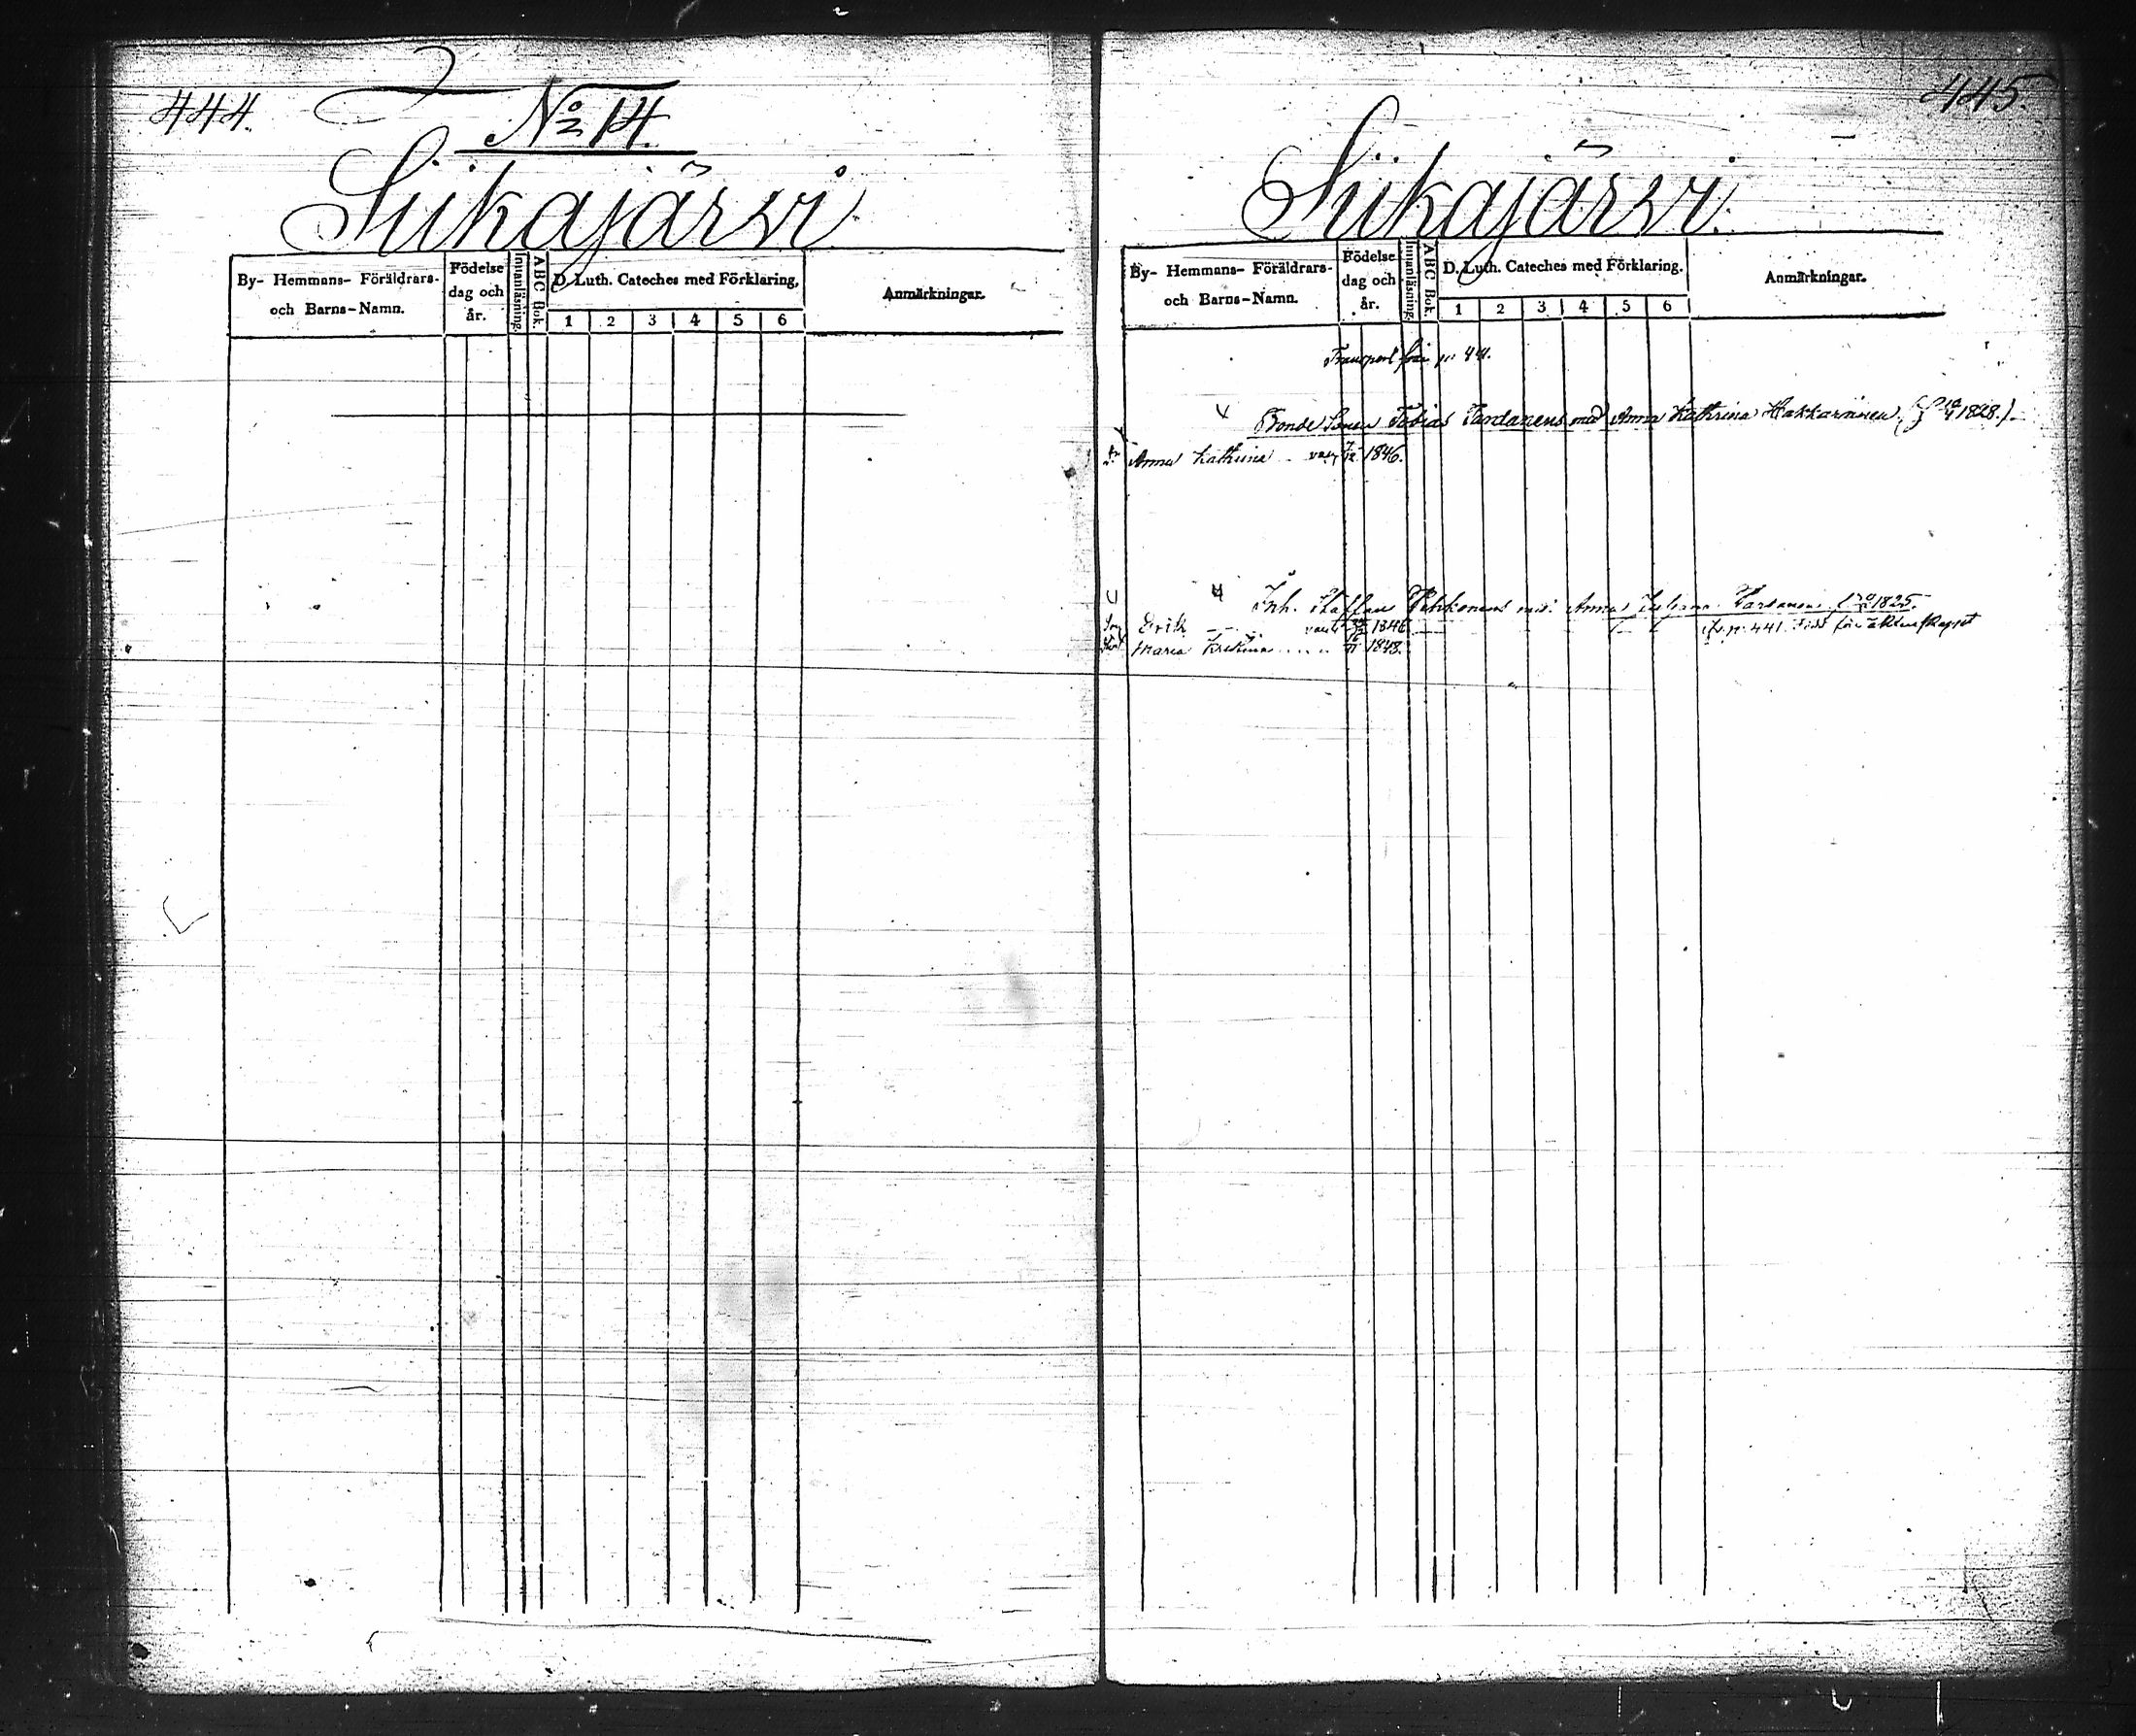 444.
No 14.
Siikajärvi
By- Hemmans- Föräldrars- och Barns-Namn.
Födelse dag och år.
Innanläsning.
ABC Bok.
D. Luth. Cateches med Förklaring.
1 2 3 4 5 6
Anmärkningar.
445.
Siikajärvi.
By- Hemmans- Föräldrars- och Barns-Namn.
Födelse dag och år.
Innanläsning.
ABC Bok.
D. Luth. Cateches med Förklaring.
1 2 3 4 5 6
Anmärkningar.
Transport från p. 441.
Bonde Sonen Tobias Tardanens med Anna Kathrina Hakkarainen 1828.)
Anna Kathrina 1846.
Inh. Staffan med Anna 1825.
Erik 1846 p. 441 född för äktenskapet
Maria Kristina 1848.